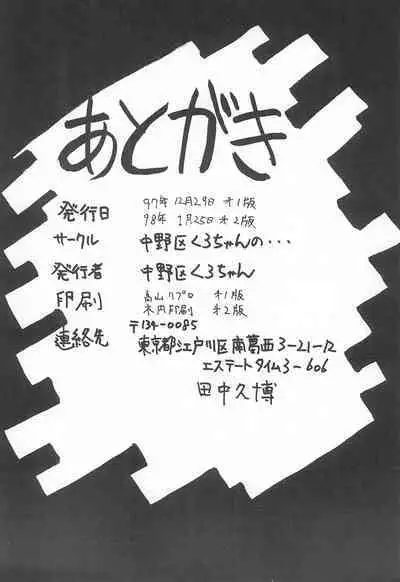 あとがき
発行日 97年 12月29日 オ1版
98年 1月25日 オ2版
サークル 中野区くろちゃんの・・・
発行者 中野区くろちゃん
印刷 高山リプロ オ1版
木内印刷 オ2版
連絡先 〒134-0085
東京都江戸川区南葛西3-21-12
エステートタイム3-606
田中久博